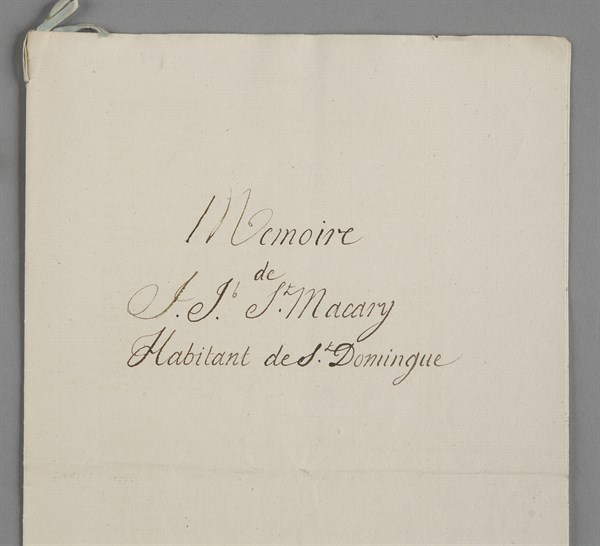 Memoire
de
J. J.b St. Macary
Habitant de St. Domingue